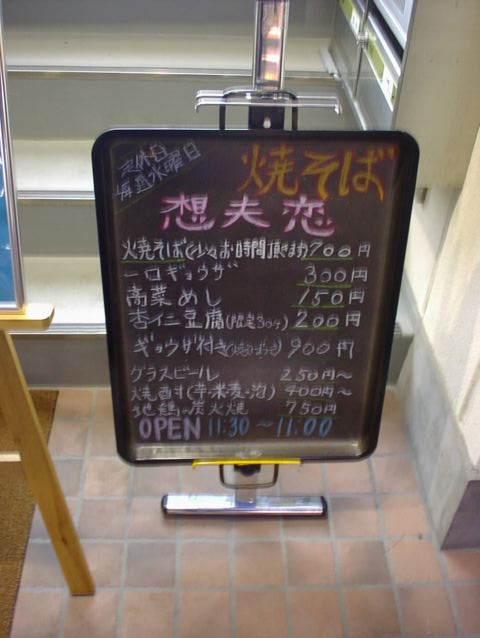 定休日
毎週水曜日
焼そば
想夫恋
焼そば(少々お時間頂きます) 700円
一口ギョウザ 300円
高菜めし 150円
杏仁豆腐(限定30ヶ) 200円
ギョウザ付き 900円
グラスビール 250円~
焼酎(芋・米・麦・泡) 400円~
地鶏の炭火焼 750円
OPEN 11:30 ~ 11:00